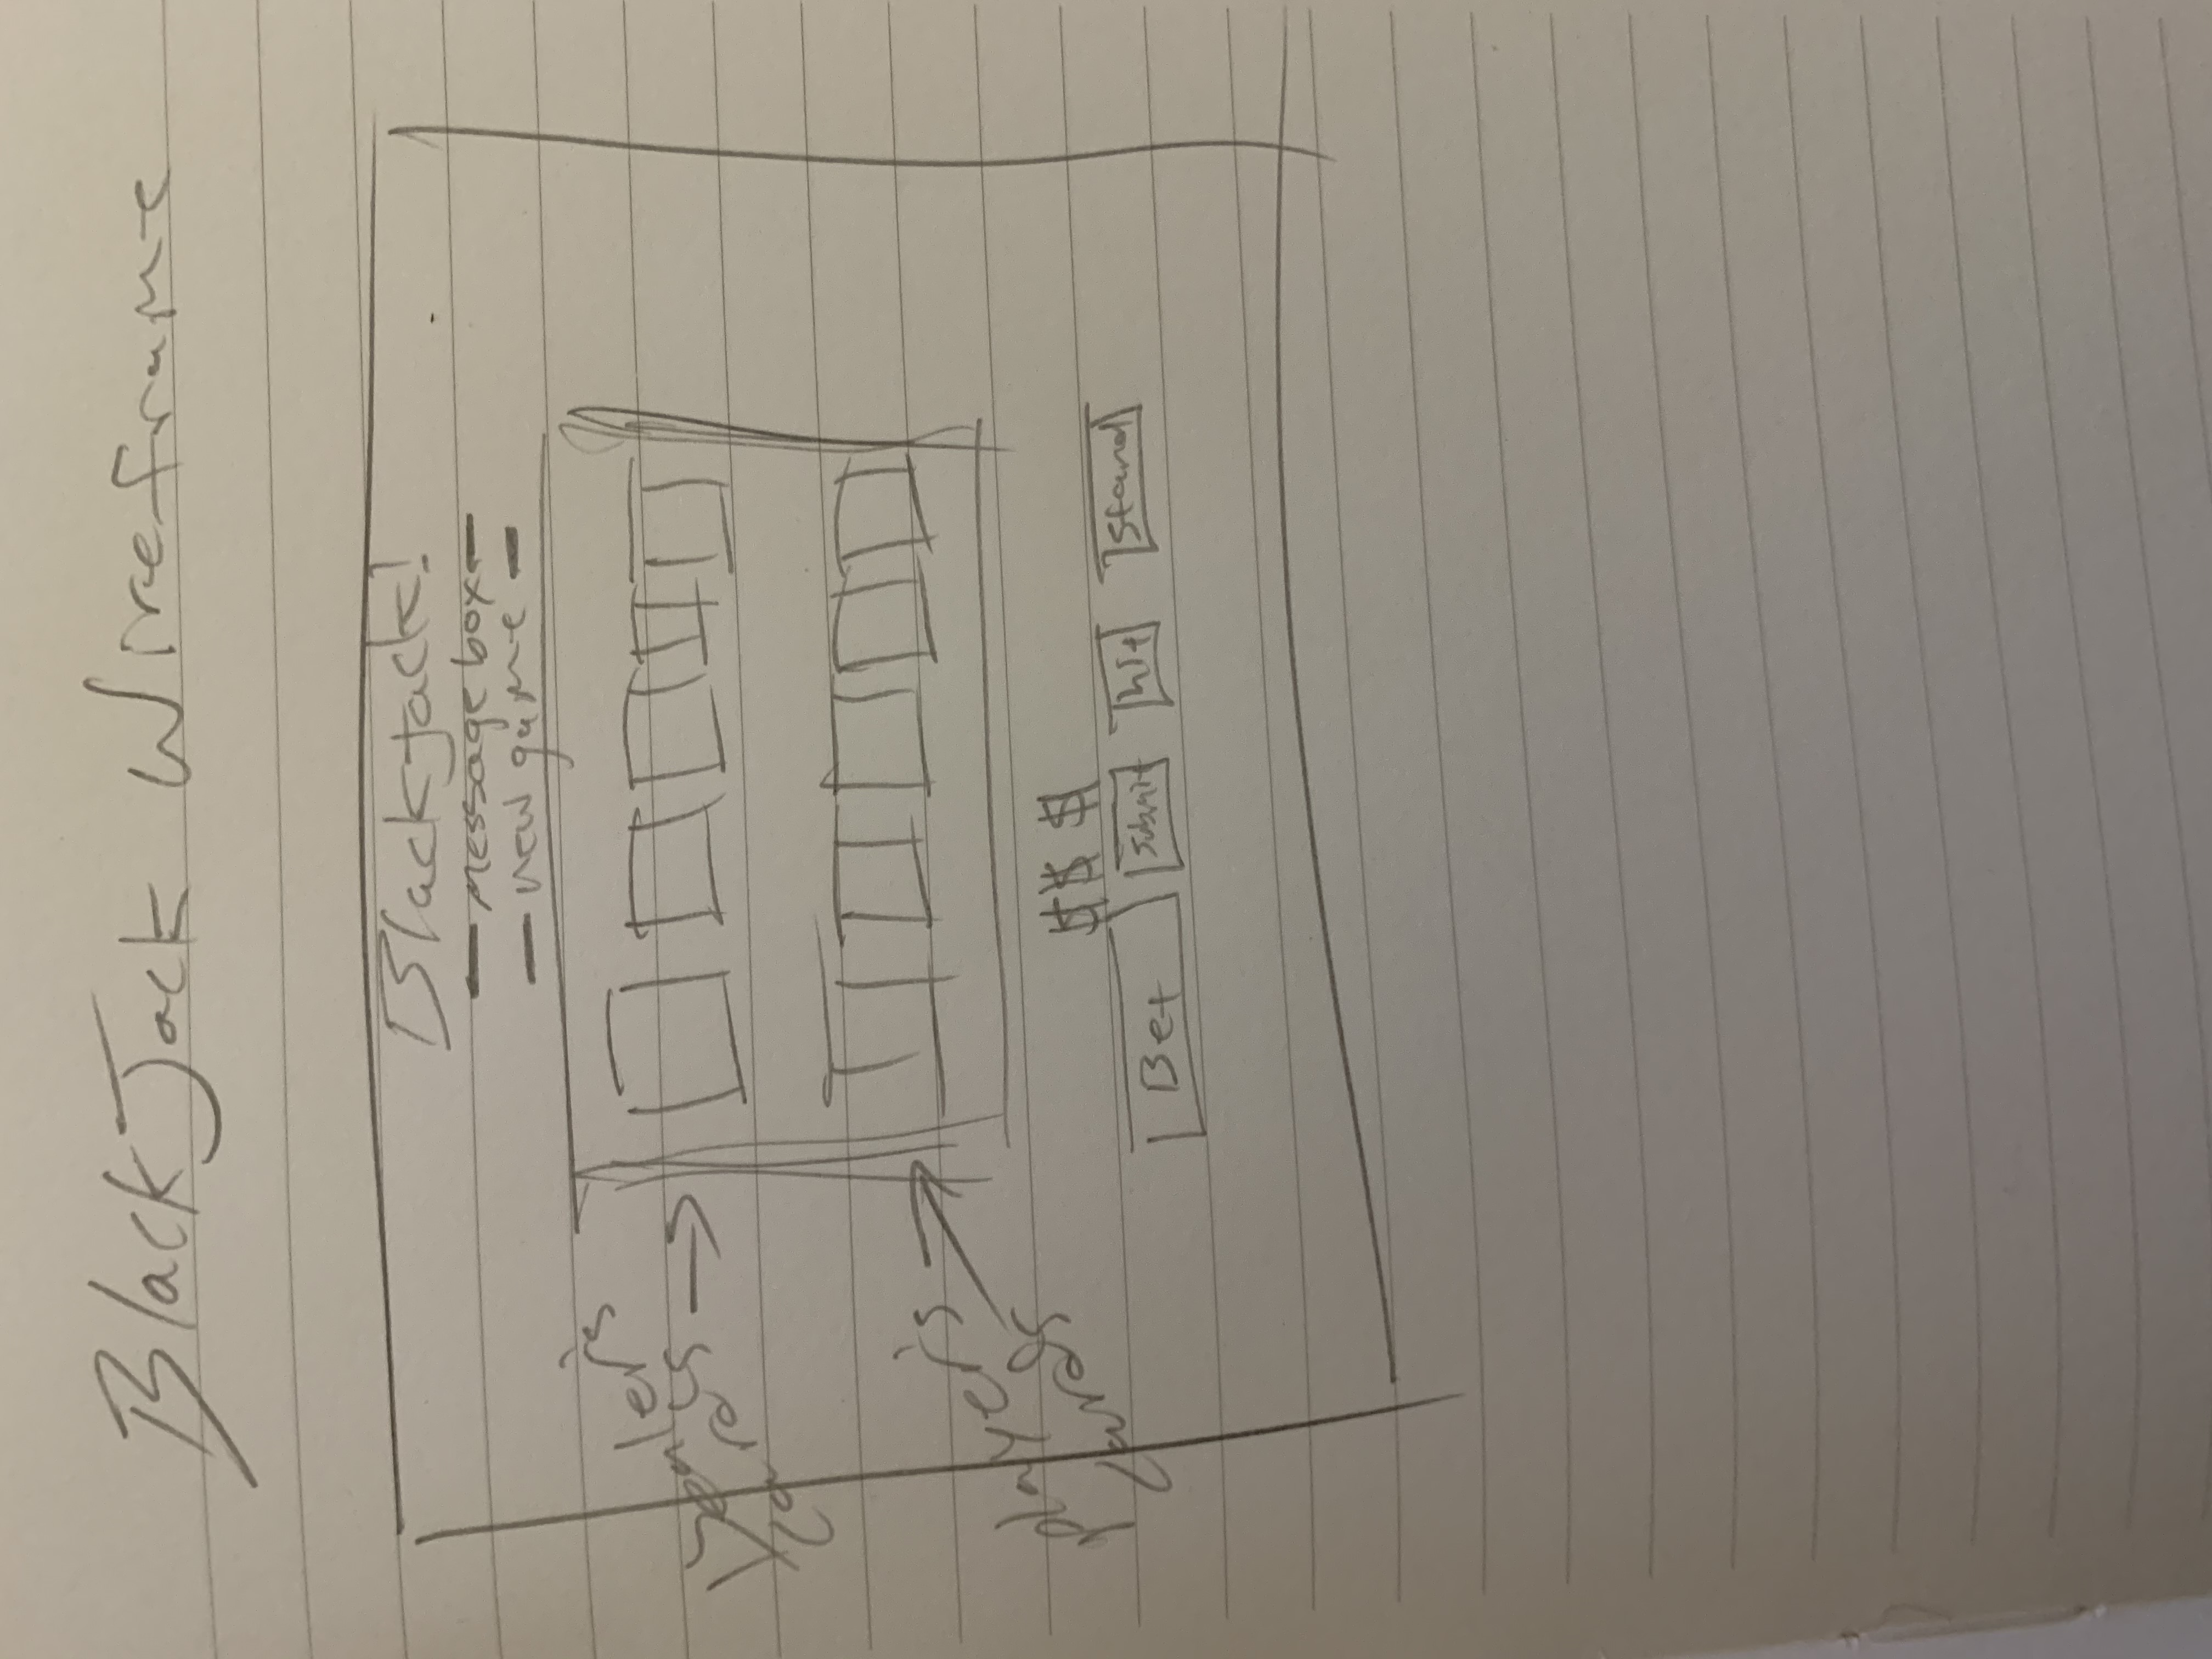 BlackJack Wireframe
BlackJack!
- message box -
- new game -
Dealer's
cards →
player's
cards
$$ $
Bet
Submit
hit
Stand